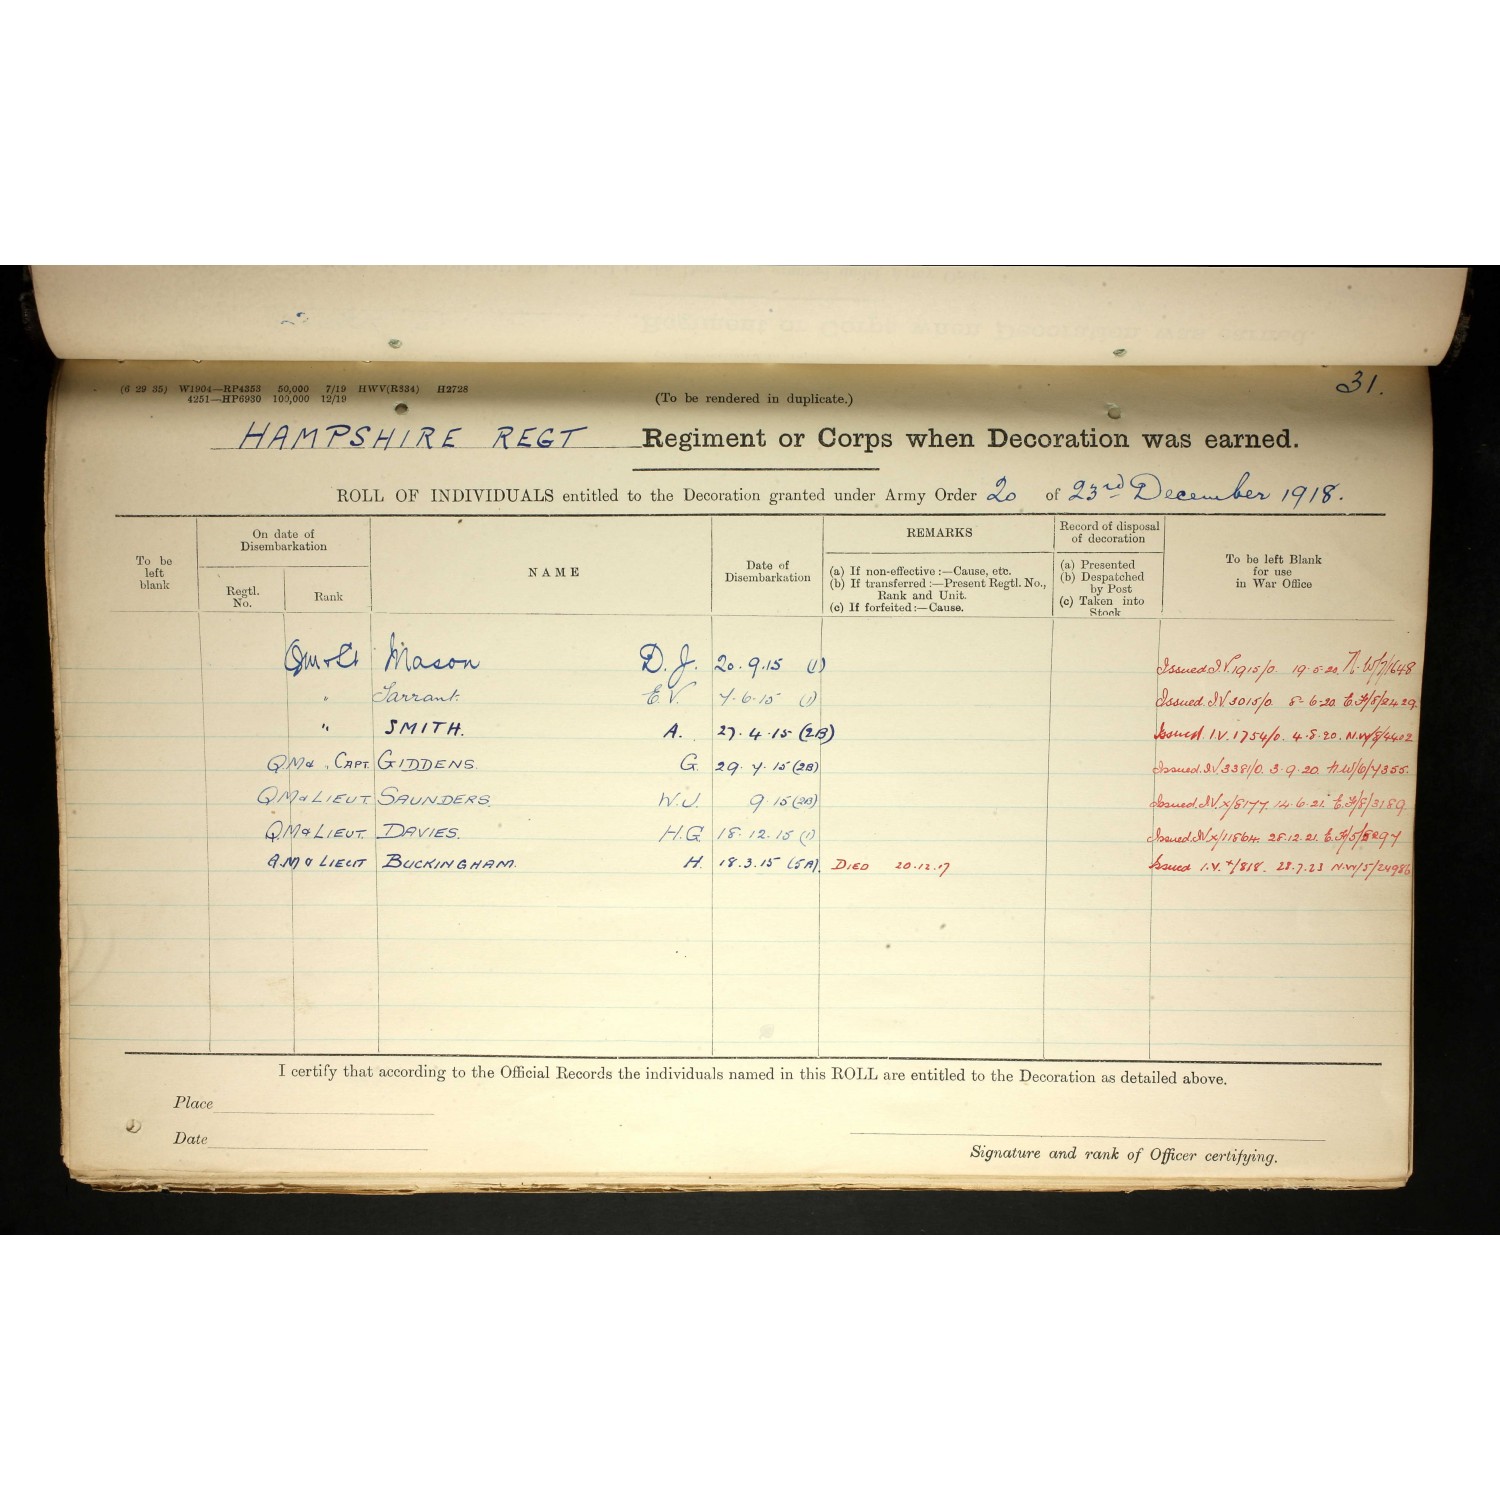 31.
(6 29 35) W1904—RP4353 50,000 7/19 HWV(R334) H2728
4251—HP6930 100,000 12/19
(To be rendered in duplicate.)
HAMPSHIRE REGT Regiment or Corps when Decoration was earned.
ROLL OF INDIVIDUALS entitled to the Decoration granted under Army Order 20 of 23rd December 1918.
To be left blank
On date of Disembarkation
Regtl. No.
Rank
NAME
Date of Disembarkation
REMARKS
(a) If non-effective:—Cause, etc.
(b) If transferred:—Present Regtl. No., Rank and Unit.
(c) If forfeited:—Cause.
Record of disposal of decoration
(a) Presented
(b) Despatched by Post
(c) Taken into Stock
To be left Blank for use in War Office
Qm & Lt Mason D. J. 20.9.15 (1) Issued I.V.1915/0. 19.5.20. N.W/7/1648
" Tarrant. E.V. 7.6.15 (1) Issued. I.V.3015/0. 8.6.20. E.F/8/2429.
" SMITH. A. 27.4.15 (2B) Issued. I.V.1754/0. 4.8.20. N.W/8/4402
Q.M & CAPT. GIDDENS. G. 29.7.15 (2B) Issued. I.V.3381/0. 3.9.20. N.W/6/7355.
Q.M & LIEUT. SAUNDERS. W.J. 9.15 (2B) Issued. I.V.x/8177. 14.6.21. E.F/8/3189.
Q.M & LIEUT. DAVIES. H.G. 18.12.15 (1) Issued. I.V.x/11864. 28.12.21. E.F/5/8297
Q.M & LIEUT BUCKINGHAM. H. 18.3.15 (5A). DIED 20.12.17 Issued I.V.x/818. 28.7.23 N.W/5/24986
I certify that according to the Official Records the individuals named in this ROLL are entitled to the Decoration as detailed above.
Place
Date
Signature and rank of Officer certifying.